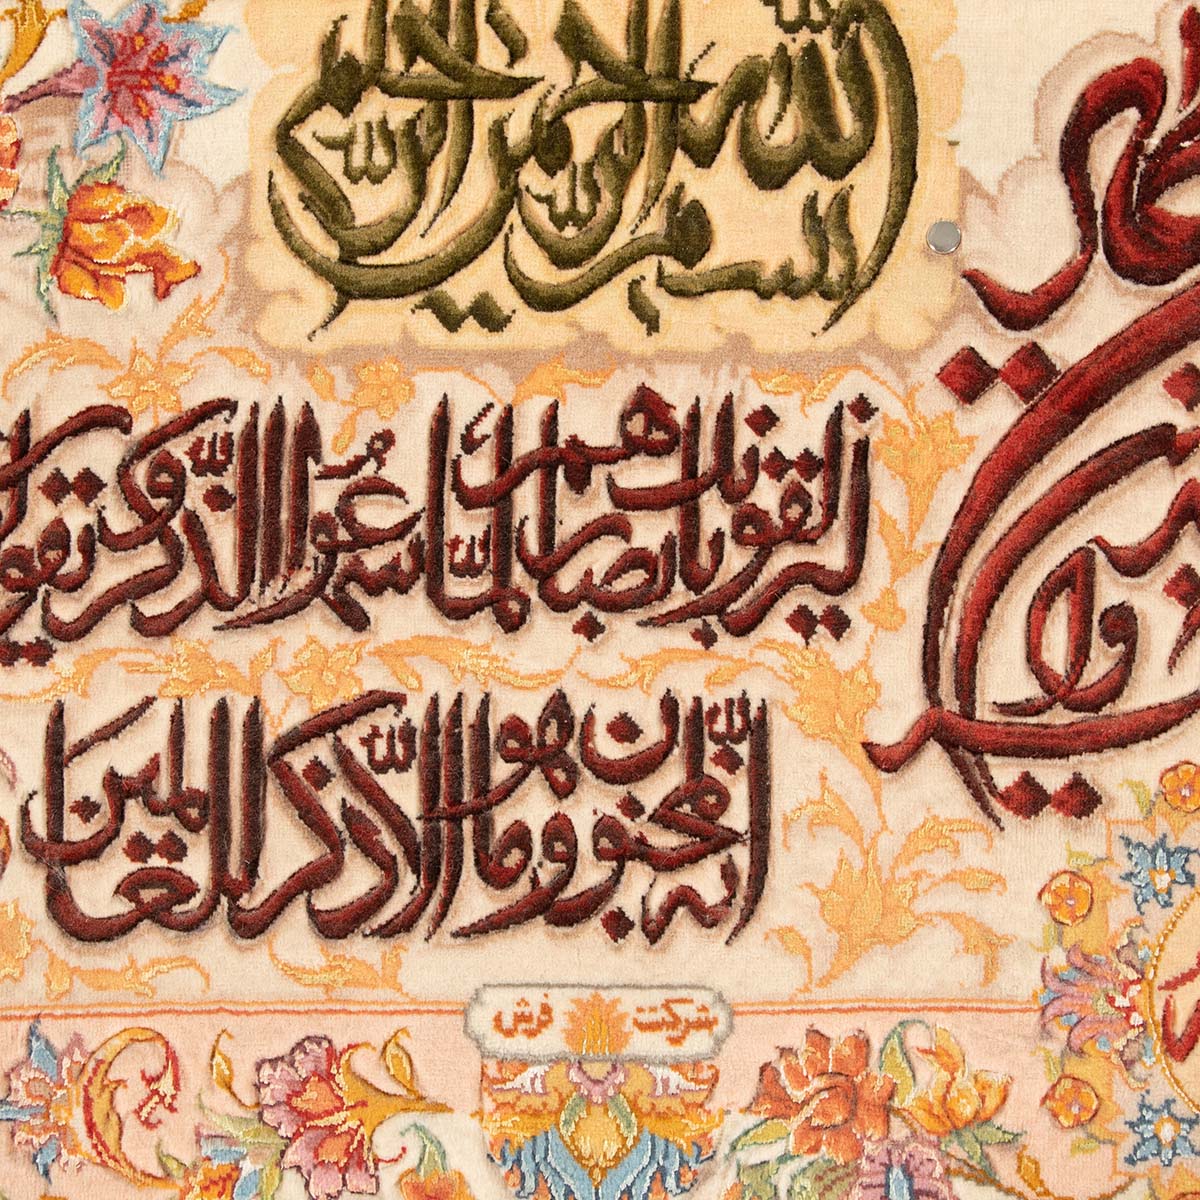 بسم الله الرحمن الرحيم
ليزلقونك بأبصارهم لما سمعوا الذكر ويقولو
إنه لمجنون وما هو إلا ذكر للعالمين
شركت فرش